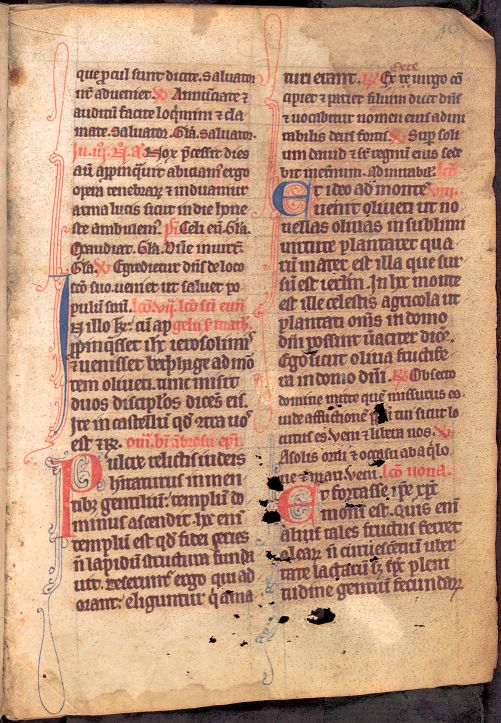 que p̄cul sunt dicite. Saluator
nr̄ adueniet. V̶ Annunciate ⁊
auditū facite loq̄mini ⁊ cla
mate. Saluator. Gl̄a. Saluator.
Nox p̄cessit dies
aūt app̄inquit abiciamꝰ ergo
opera tenebraꝝ ⁊ induamur
arma lucis sicut in die hone
ste ambulemꝰ. Celi en̄. Gl̄a.
Exaudiat. Gl̄a. Vs̄e
Gl̄a. V̶ Egredietur dn̄s de loco
sc̄o suo. ueniet ut saluet po
pulū suū. lc̄o vij. lc̄o sc̄i euā
gelii s̄ math.
In illo tꝑr. cū ap
p̄pinq̄sset ih̄c ierosolimis
⁊ uenisset bethphage ad mō
tem oliueti. tunc misit
duos discip̄los dicēs eis.
Ite in castellū qd̄ ꝯtra uos
est ⁊ R̄. om̄. bi ambrosii ep̄i.
Pulcre relictis iudeis
habitaturus in men
tibꝫ gentiliū. templū do
minus ascendit. hc̄ enī
templū est qd̄ fidei series
n̄ lapidū structura funda
uit. Deserunt̄ ergo qui od
erant. eliguntur q̄ ama
turi erant. R̶ Ecce
uirgo cō
cipiet ⁊ pariet filium dicit dn̄s
⁊ uocabitur nomen eius admi
rabilis deus fortis. V̶ Suꝑ soli
um dauid ⁊ sr̄ regnū eius sede
bit ineternū. Admirabil. lc̄o
viii.
Et ideo ad montē
uenit oliueti ut no
uellas oliuas in sublimi
uirtute plantaret qua
rū mater est illa que sur
sū est ierlm̄. In hc̄ monte
est ille celestis agricola ut
plantati om̄s in domo
dn̄i possint uiciter dicē.
Ego sicut oliua fructife
ra in domo dn̄i. R̶ Obsecro
domine mitte quē missurus es
uide afflictionē ppl̄i tui sicut lo
cutus es. Veni ⁊ libera nos. V̶
A solis ortu ⁊ occasu ab aq̄lo
ne ⁊ mari. Veni. lc̄o nona.
Et fortasse ip̄e xp̄c
mons est. Quis enī
alius tales fructus ferret
oleaꝝ n̄ curuescentiū uber
tate bacharū sꝫ sp̄c pleni
tudine gentiū fecundaꝝ